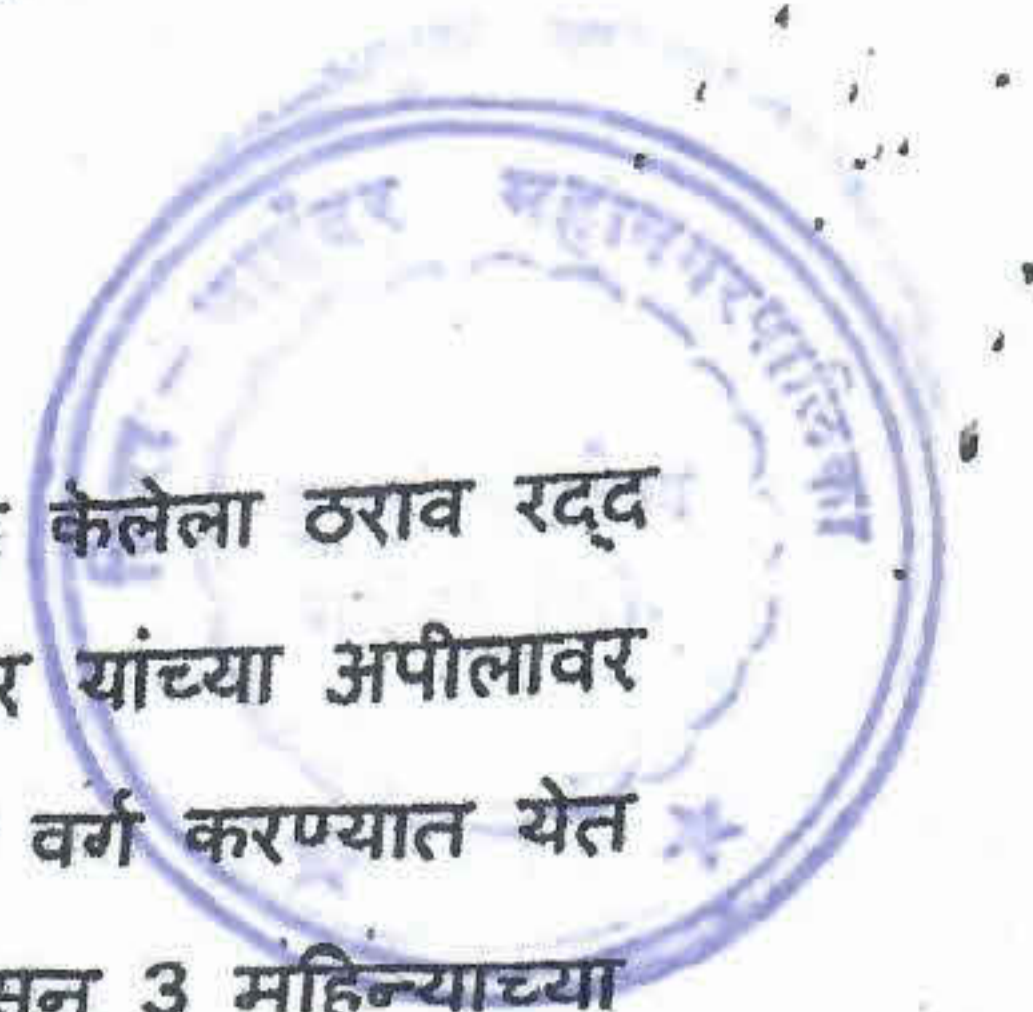 महानगरपालिका
केलेला ठराव रद्द
यांच्या अपीलावर
वर्ग करण्यात येत
3 महिन्याच्या